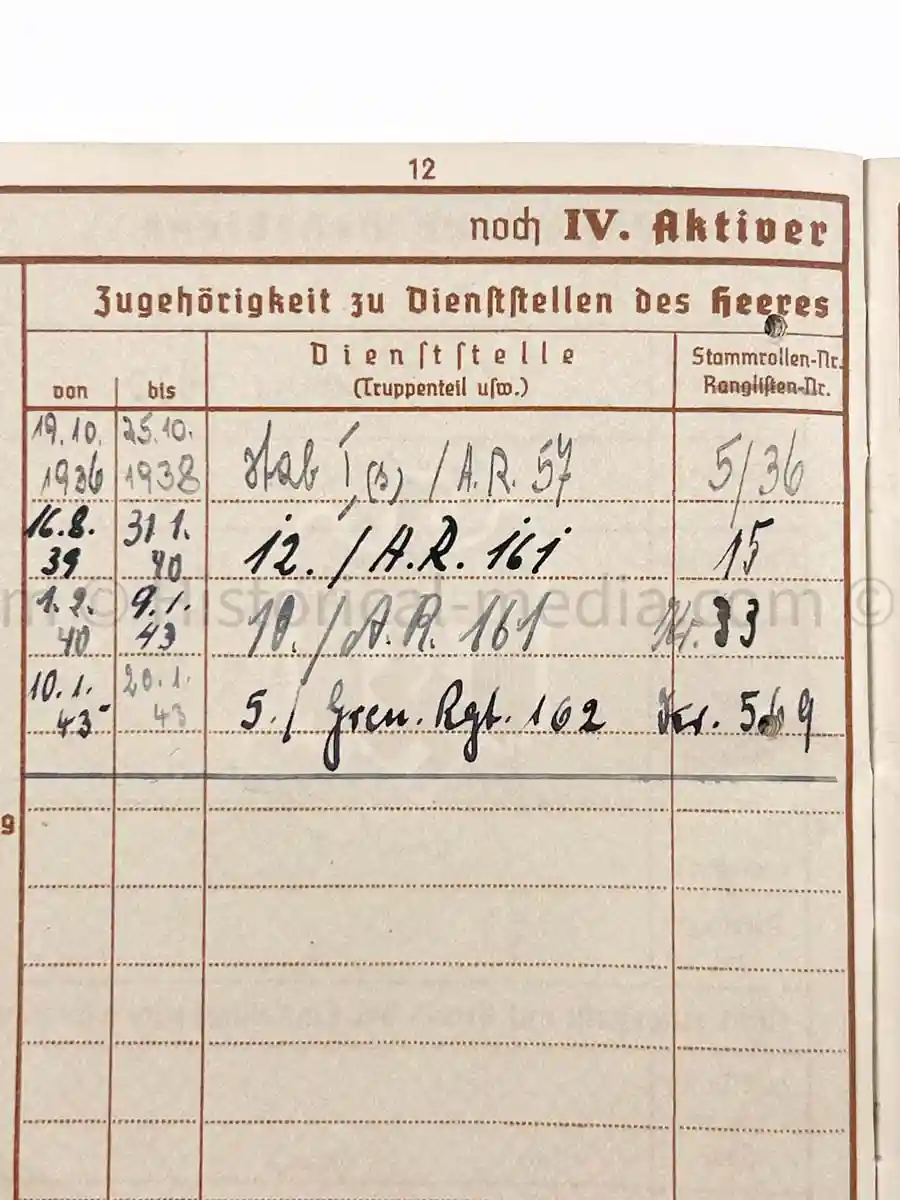 12
noch IV. Aktiver
Zugehörigkeit zu Dienststellen des Heeres
von bis Dienststelle (Truppenteil usw.) Stammrollen-Nr. Ranglisten-Nr.
19.10. 1936 25.10. 1938 Stab I, (s) / A.R. 57 5/36
16.8. 39 31 1. 40 12. / A.R. 161 15
© Historical-media.com ©
1.2. 40 9.1. 43 10. / A.R. 161 Nr. 33
10.1. 43 20.1. 43 5. / Gren. Rgt. 162 Nr. 569
9